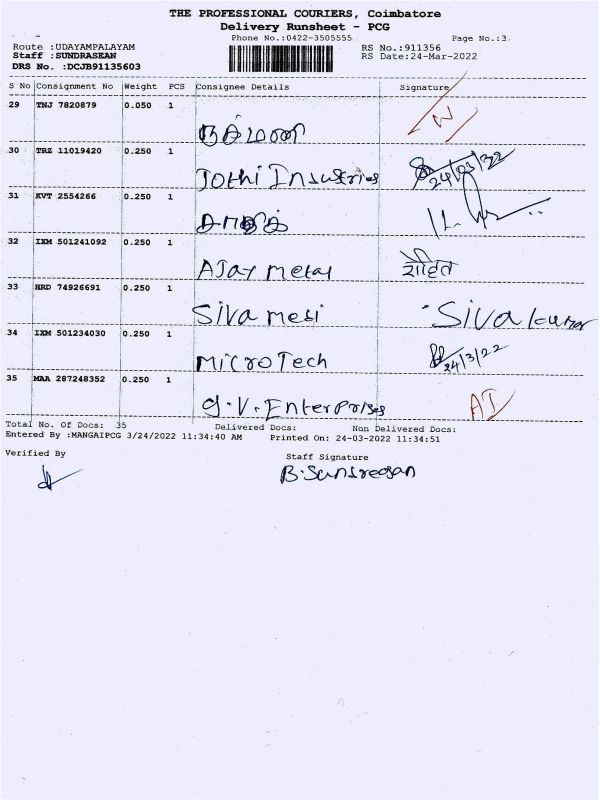 THE PROFESSIONAL COURIERS, Coimbatore
Delivery Runsheet - PCG
Phone No.:0422-3505555
Page No.:3
Route :UDAYAMPALAYAM
RS No.:911356
Staff :SUNDRASEAN
RS Date:24-Mar-2022
DRS No. :DCJB91135603
S No Consignment No Weight PCS Consignee Details Signature
29 TNJ 7820879 0.050 1
30 TRZ 11019420 0.250 1
Jothi Insustries 24/03/22
31 KVT 2554266 0.250 1
32 IXM 501241092 0.250 1
AJay metal रोहित
33 HRD 74926691 0.250 1
Siva mesi Siva kumar
34 IXM 501234030 0.250 1
MicroTech 24/3/22
35 MAA 287248352 0.250 1
G.V.Enterprises AI
Total No. Of Docs: 35 Delivered Docs: Non Delivered Docs:
Entered By :MANGAIPCG 3/24/2022 11:34:40 AM Printed On: 24-03-2022 11:34:51
Verified By Staff Signature